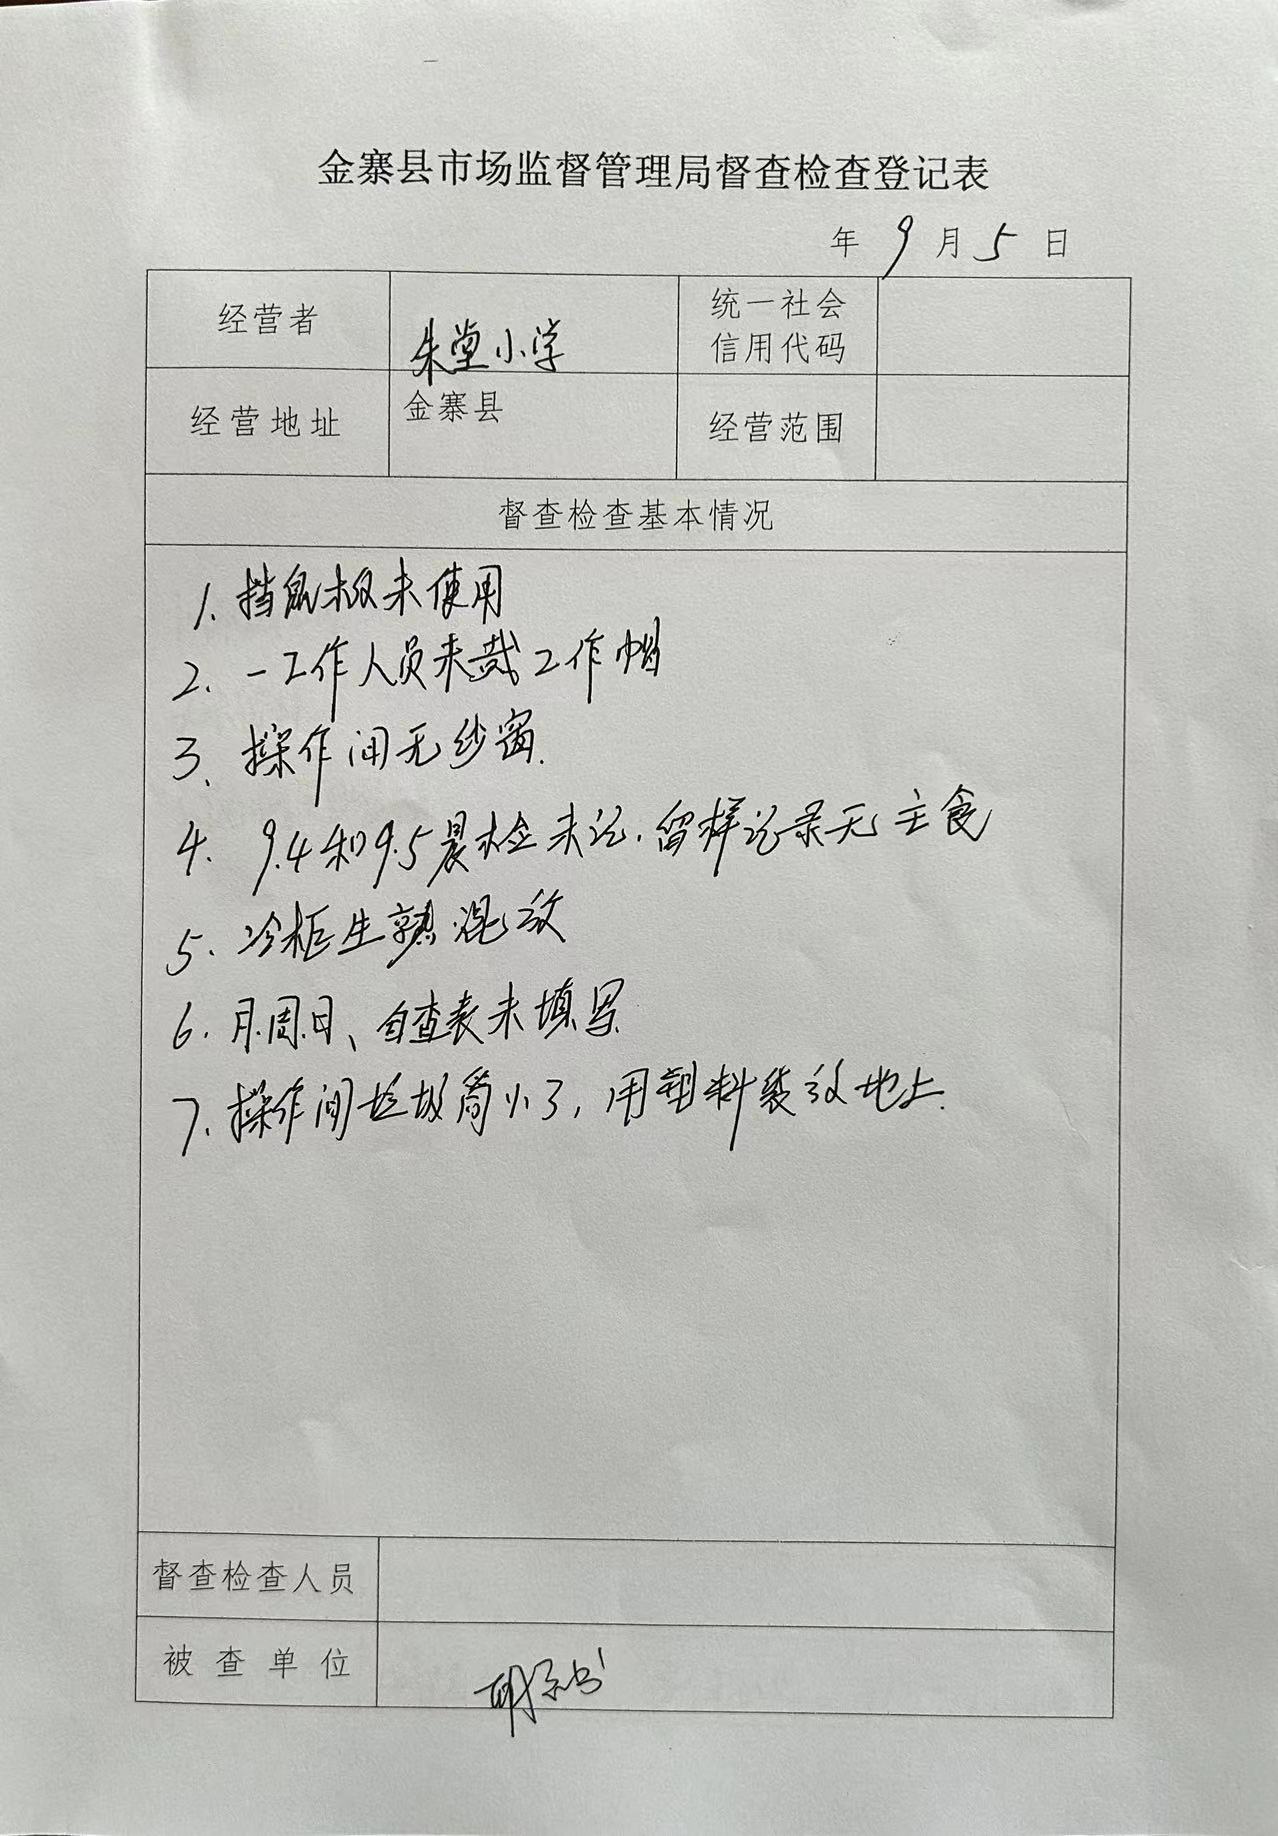 金寨县市场监督管理局督查检查登记表
年 9 月 5 日
经营者 朱堂小学 统一社会信用代码
经营地址 金寨县 经营范围
督查检查基本情况
1. 挡鼠板未使用
2. 一工作人员未戴工作帽
3. 操作间无纱窗.
4. 9.4和9.5晨检未记，留样记录无主食
5. 冷柜生熟混放
6. 月.周.日、自查表未填写
7. 操作间垃圾筒小了，用塑料袋放地上.
督查检查人员
被查单位